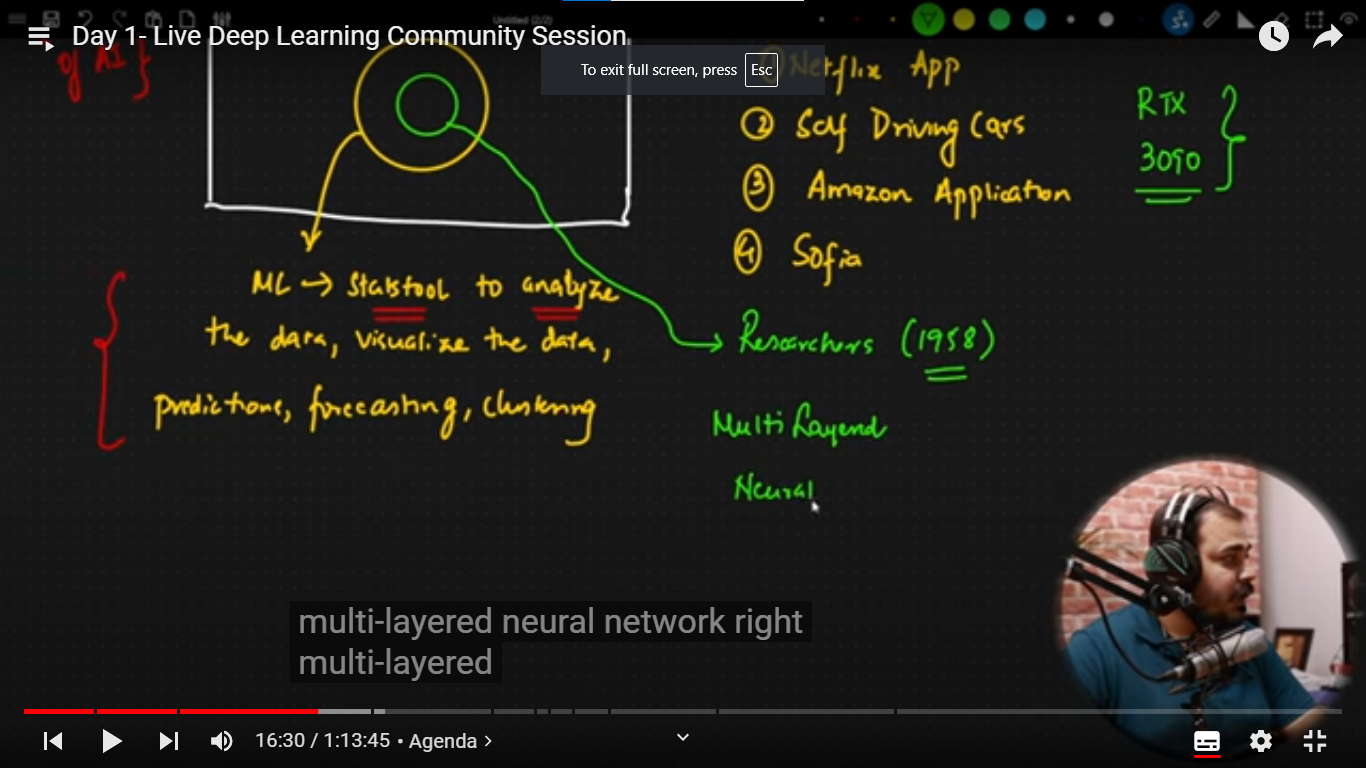 Untitled (2/2)
Day 1- Live Deep Learning Community Session
To exit full screen, press Esc
of AI }
① Netflix App
② Self Driving Cars
③ Amazon Application
④ Sofia
RTX
3090
ML → Statstool to analyze
the data, visualize the data,
predictions, forecasting, clustering
Researchers (1958)
Multi Layered
Neural
multi-layered neural network right
multi-layered
16:30 / 1:13:45 • Agenda >